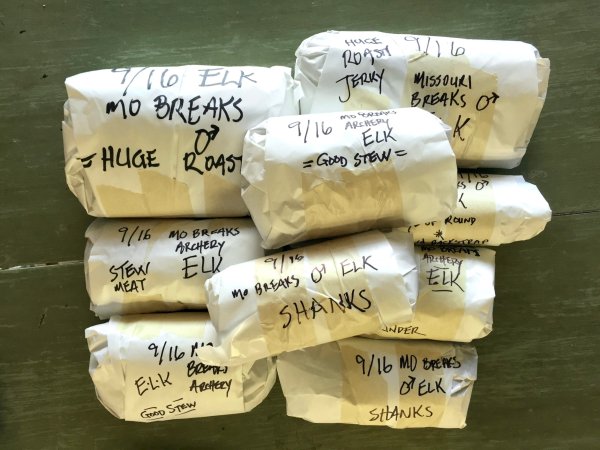 9/16 ELK
MO BREAKS
♂
=HUGE ROAST
HUGE
ROAST
JERKY
9/16
MISSOURI
BREAKS ♂
9/16 MO BREAKS
ARCHERY
ELK
=GOOD STEW=
♂
OF ROUND
*
BACKSTRAP
MO BREAKS
ARCHERY
ELK
9/16 MO BREAKS
ARCHERY
STEW ELK
MEAT
9/16
MO BREAKS ♂ ELK
SHANKS
9/16 MO
BREAKS
E.L.K ARCHERY
GOOD STEW
9/16 MO BREAKS
♂ ELK
SHANKS